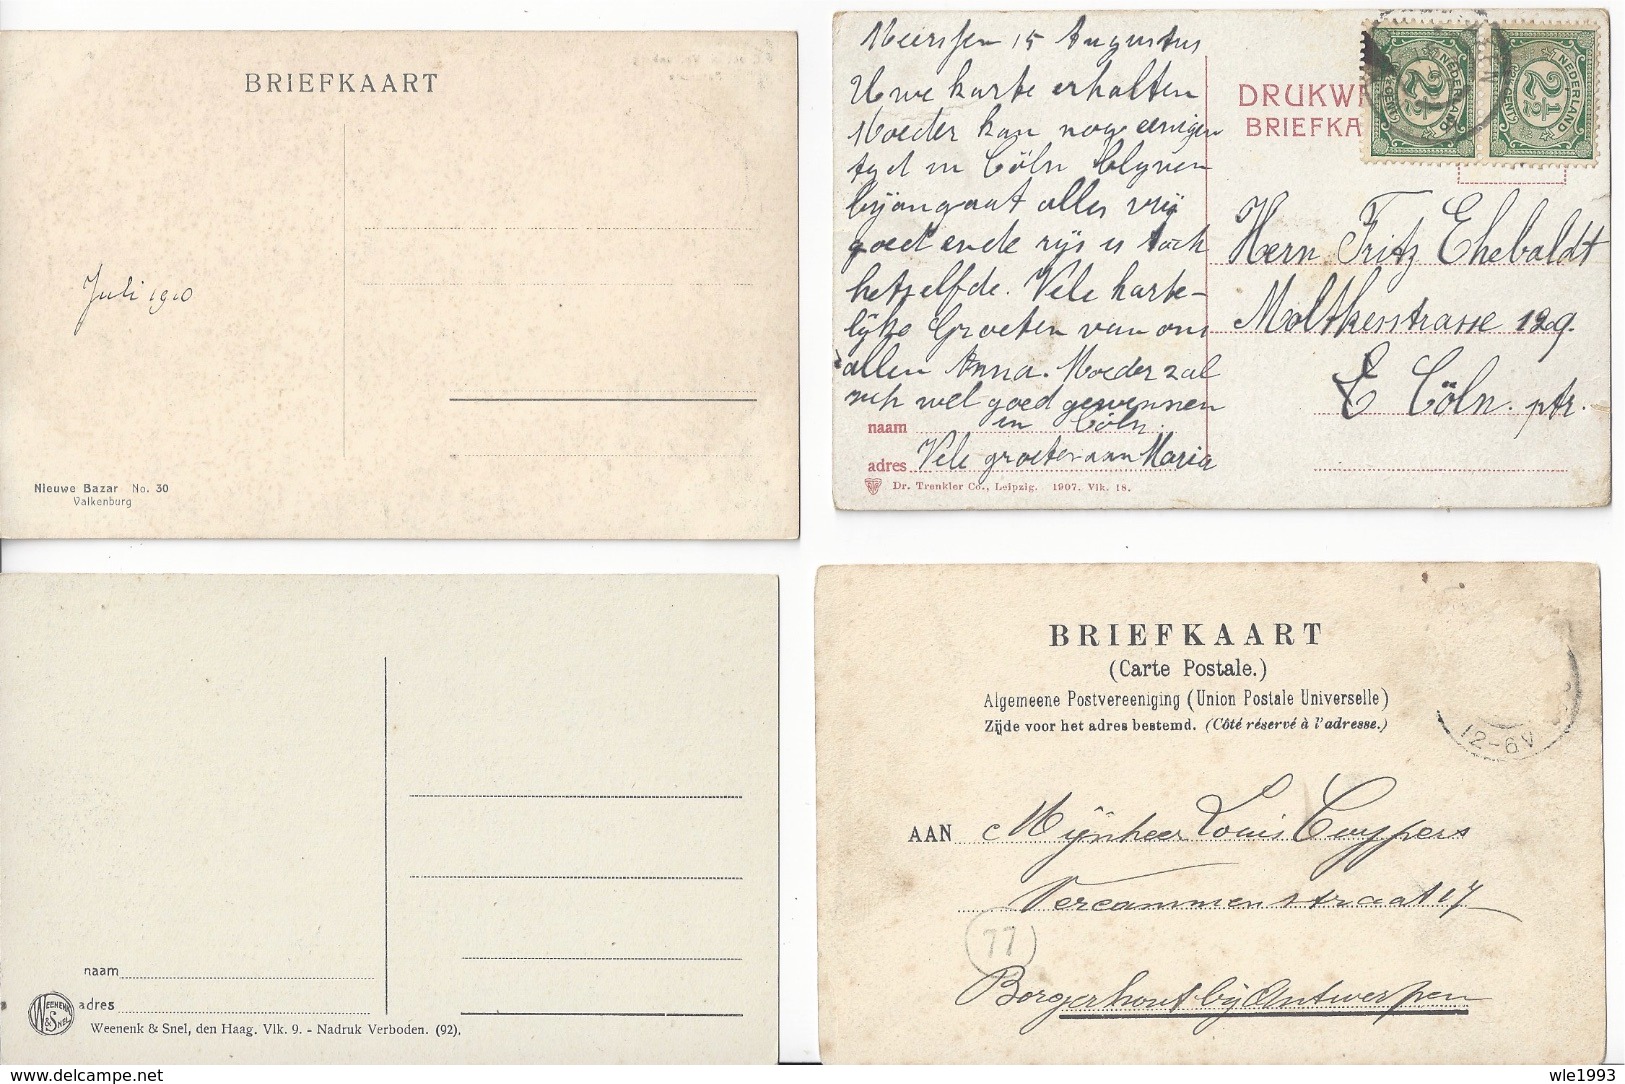 BRIEFKAART
Juli 1910
Nieuwe Bazar No. 30
Valkenburg
Meerssen 15 Augustus
Uwe karte erhalten
Moeder kan nog eenigen
tyd in Cöln blyven
byongaat alles vrij
goed ende rijs is toch
hetzelfde. Vele harte-
lijke Groeten van ons
allen Anna. Moeder zal
zich wel goed gewennen
naam in Cöln.
adres Vele groeten aan Maria
Dr. Trenkler Co., Leipzig. 1907. Vlk. 18.
DRUKW
BRIEFKA
NEDERLAND
2½
CENT
NEDERLAND
2½
CENT
Herrn Fritz Ehebaldt
Moltkestrasse 129.
Cöln. ptr.
naam
adres
WEENENK & SNEL
Weenenk & Snel, den Haag. Vlk. 9. - Nadruk Verboden. (92).
BRIEFKAART
(Carte Postale.)
Algemeene Postvereeniging (Union Postale Universelle)
Zijde voor het adres bestemd. (Côté réservé à l'adresse.)
12-6V
AAN Mijnheer Louis Cuypers
Vercammenstraat 17
77
Borgerhout bij Antwerpen
www.delcampe.net
wle1993